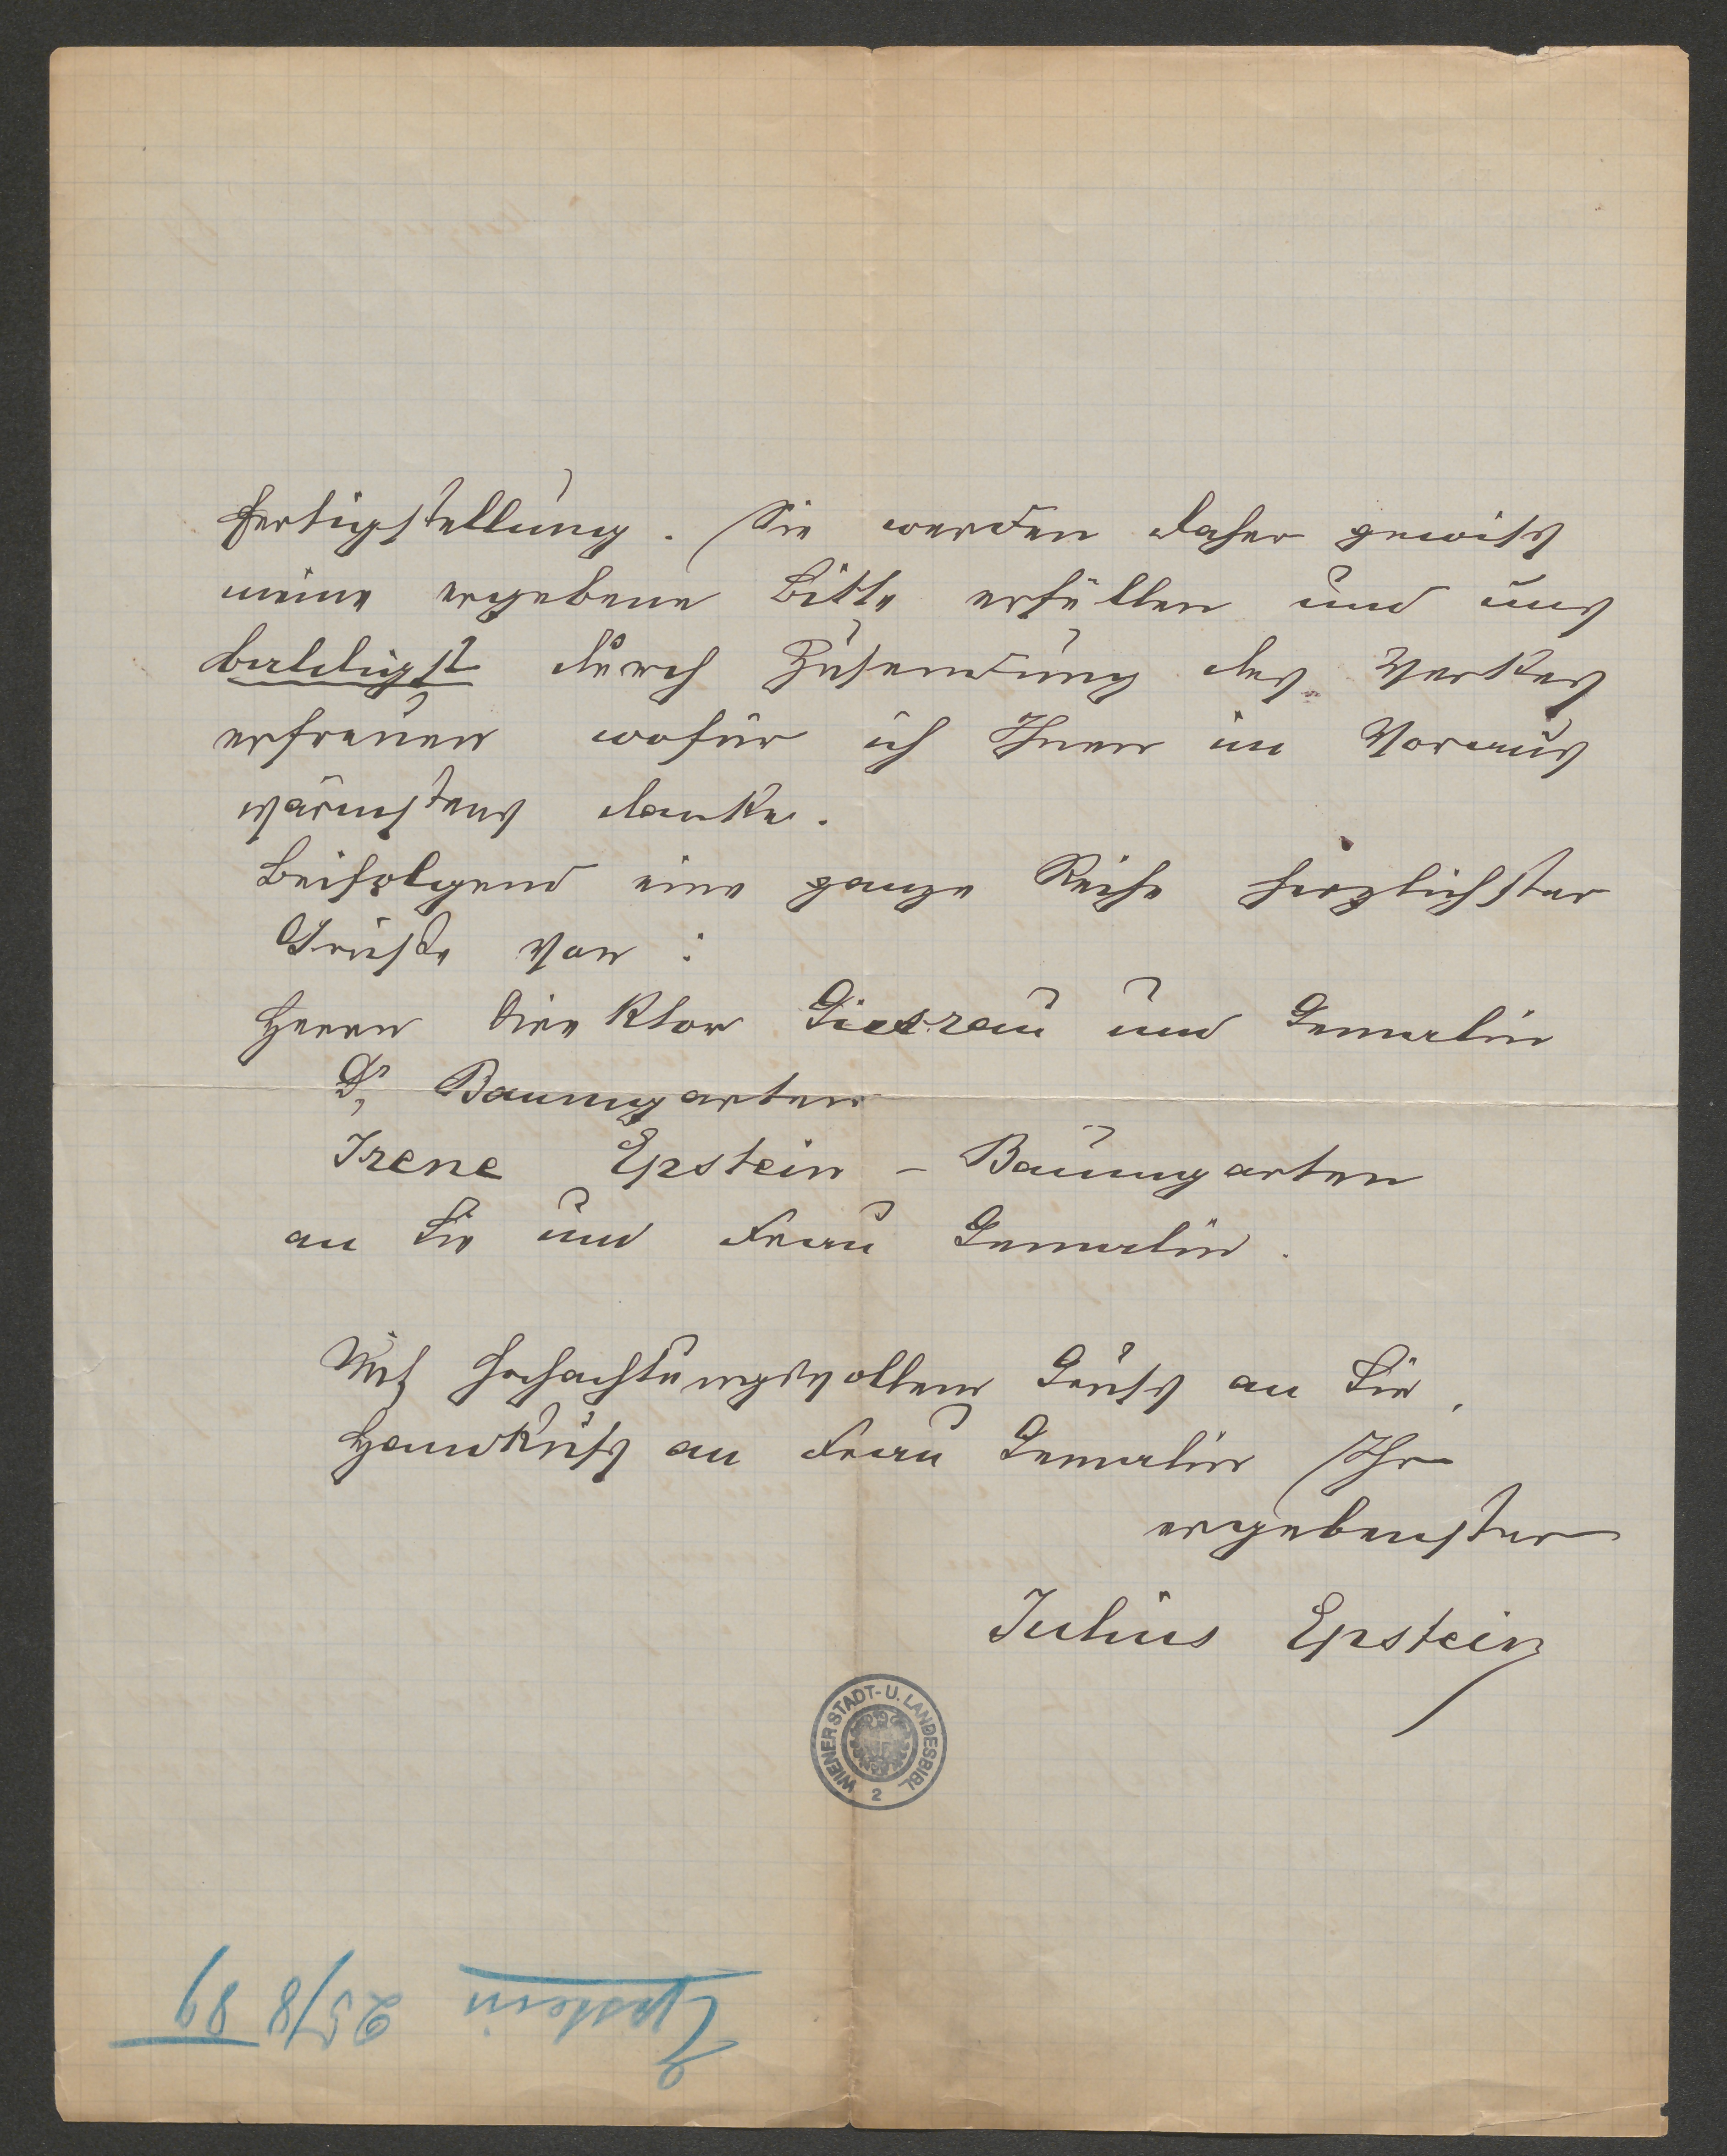 Fertigstellung. Sie werden daher gewiss
meine ergebene Bitte erfüllen und uns
baldigst durch Zusendung des Werkes
erfreuen wofür ich Ihnen im Voraus
wärmstens danke.
Beifolgend eine ganze Reihe herzlichster
Grüsse von :
Herrn Direktor und Gemalin
Dr. Baumgarten
Irene Epstein - Baumgarten
an Sie und Frau Gemalin.
Mit hochachtungsvollem Gruss an Sie,
Handkuss an Frau Gemalin Ihr
ergebenster
Julius Epstein
WIENER STADT- U. LANDESBIBL
2
Epstein 25/8 89